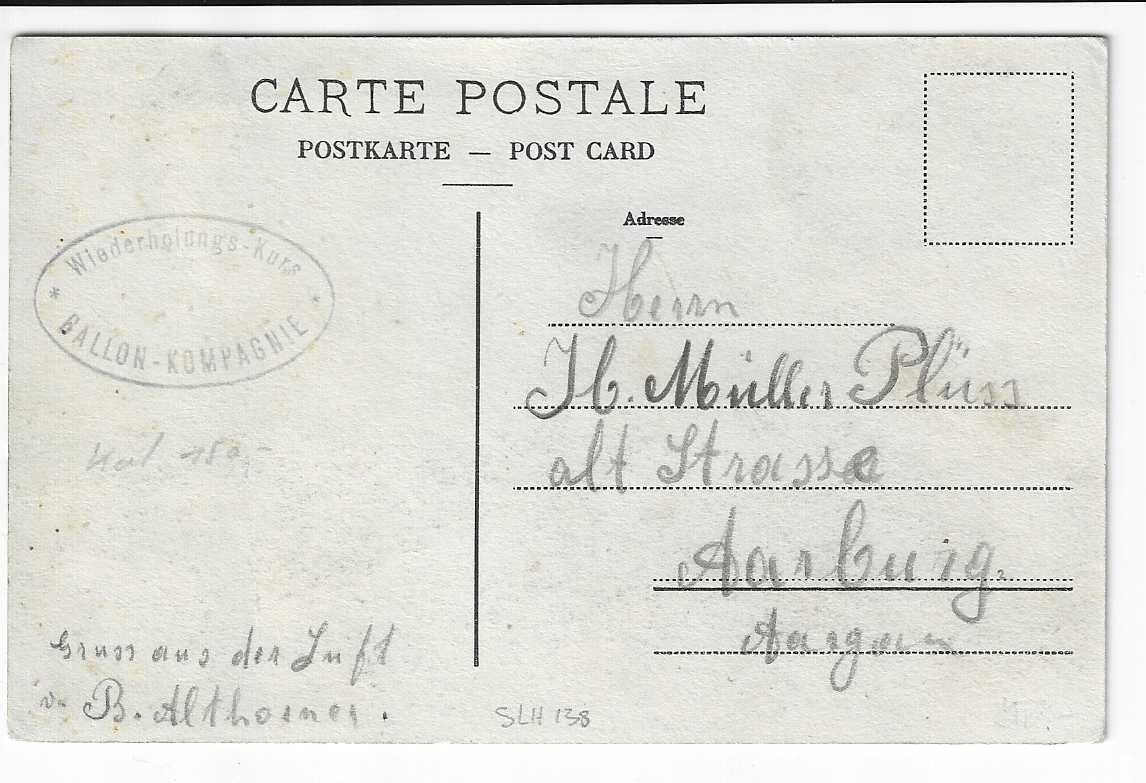 CARTE POSTALE
POSTKARTE — POST CARD
Adresse
* Wiederholungs-Kurs *
BALLON-KOMPAGNIE
Herrn
Jb. Müller Plüss
alt Strasse
Aarburg.
Aargau
Kat. 180,-
Gruss aus der Luft
v. B. Althoener.
SLH 138